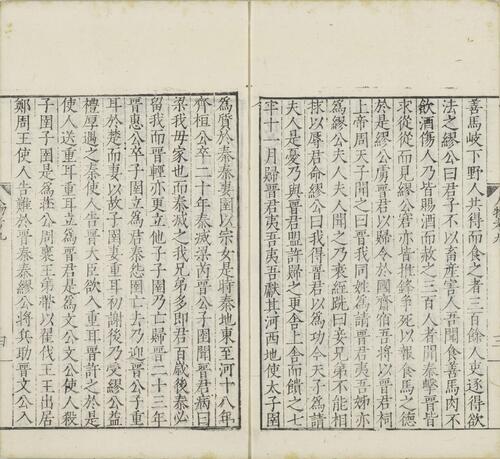 善馬岐下野人共得而食之者三百餘人吏逐得欲
法之繆公曰君子不以畜産害人吾聞食善馬肉不
飲酒傷人乃皆賜酒而赦之三百人者聞秦擊晉皆
求從從而見繆公窘亦皆推鋒爭死以報食馬之德
於是繆公虜晉君以歸令於國齊宿吾將以晉君祠
上帝周天子聞之曰晉我同姓爲請晉君夷吾姊亦
爲繆公夫人夫人聞之乃衰絰跣曰妾兄弟不能相
捄以辱君命繆公曰我得晉君以爲功今天子爲請
夫人是憂乃與晉君盟許歸之更舍上舍而饋之七
牢十一月歸晉君夷吾夷吾獻其河西地使太子圉
三
四
爲質於秦秦妻圉以宗女是時秦地東至河十八年
齊桓公卒二十年秦滅梁芮晉公子圉聞晉君病曰
梁我母家也而秦滅之我兄弟多即君百歲後秦必
留我而晉輕亦更立他子子圉乃亡歸晉二十三年
晉惠公卒子圉立爲君秦怨圉亡去乃迎晉公子重
耳於楚而妻以故子圉妻重耳初謝後乃受繆公益
禮厚遇之秦使人告晉大臣欲入重耳晉許之於是
使人送重耳重耳立爲晉君是爲文公文公使人殺
子圉子圉是爲懷公周襄王弟帶以翟伐王王出居
鄭周王使人告難於晉秦秦繆公將兵助晉文公入